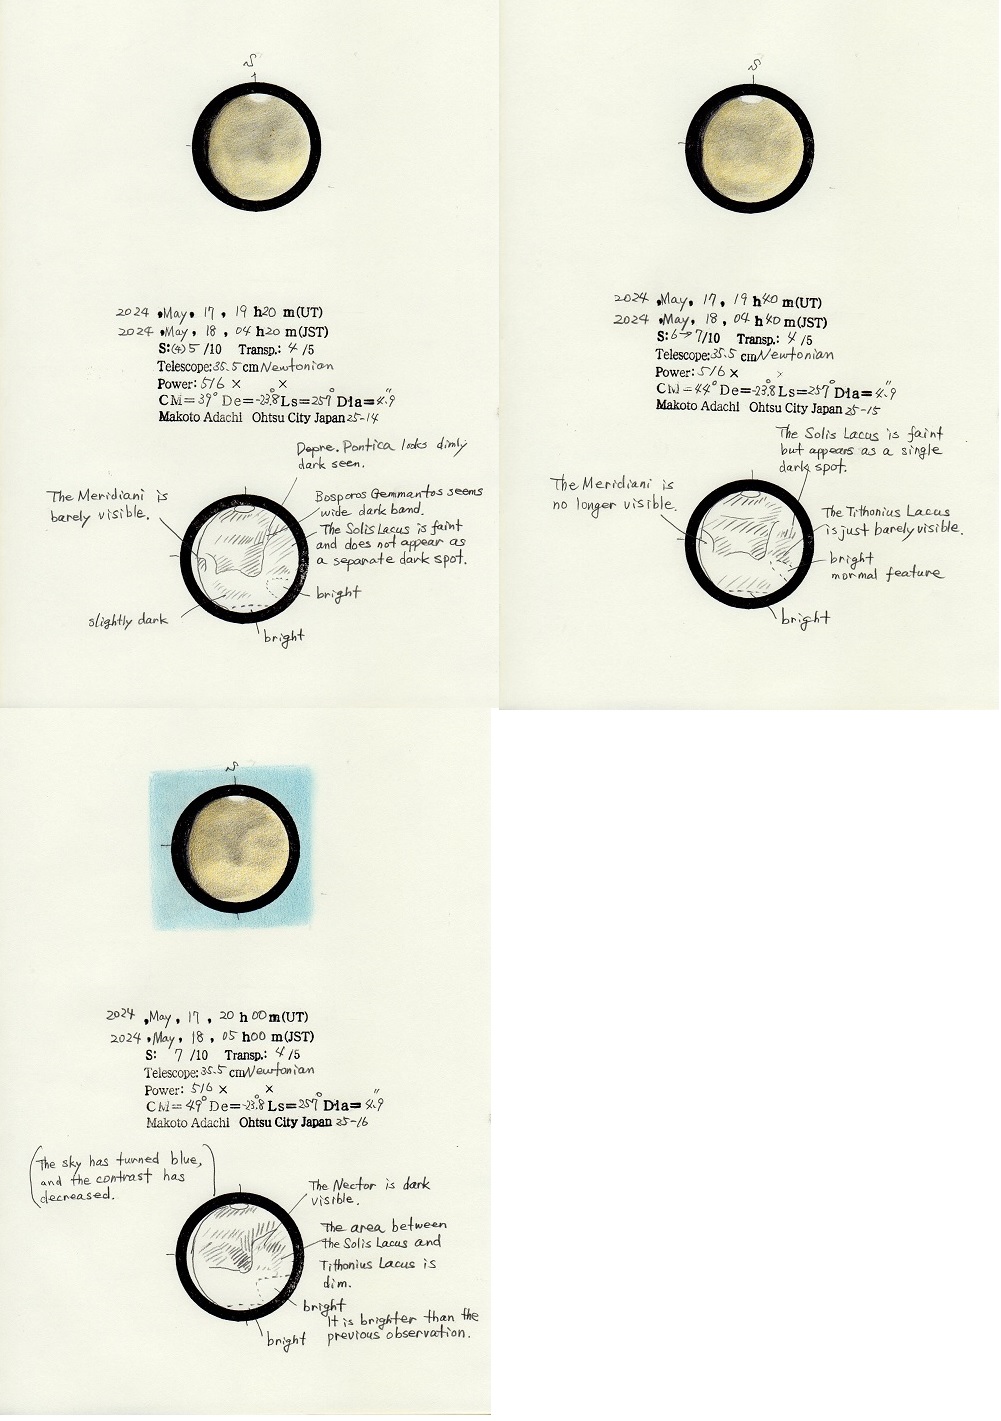 S
2024, May, 17, 19 h20 m(UT)
2024, May, 18, 04 h20 m(JST)
S:(4)5 /10 Transp.: 4 /5
Telescope:35.5 cm Newtonian
Power: 516 × ×
CM=39° De=-23.8° Ls=257° Dia=4.9"
Makoto Adachi Ohtsu City Japan 25-14
Depre. Pontica looks dimly
dark seen.
The Meridiani is
barely visible.
Bosporos Gemmantos seems
wide dark band.
The Solis Lacus is faint
and does not appear as
a separate dark spot.
bright
slightly dark
bright
S
2024, May, 17, 19 h40 m(UT)
2024, May, 18, 04 h40 m(JST)
S:6→7/10 Transp.: 4 /5
Telescope:35.5 cm Newtonian
Power: 516 × ×
CM=44° De=-23.8° Ls=257° Dia=4.9"
Makoto Adachi Ohtsu City Japan 25-15
The Solis Lacus is faint
but appears as a single
dark spot.
The Meridiani is
no longer visible.
The Tithonius Lacus
is just barely visible.
bright
normal feature
bright
S
2024, May, 17, 20 h 00 m(UT)
2024, May, 18, 05 h00 m(JST)
S: 7 /10 Transp.: 4 /5
Telescope: 35.5 cm Newtonian
Power: 516 × ×
CM=49° De=-23.8° Ls=257° Dia=4.9"
Makoto Adachi Ohtsu City Japan 25-16
(The sky has turned blue,
and the contrast has
decreased.)
The Nector is dark
visible.
The area between
the Solis Lacus and
Tithonius Lacus is
dim.
bright
It is brighter than the
previous observation.
bright